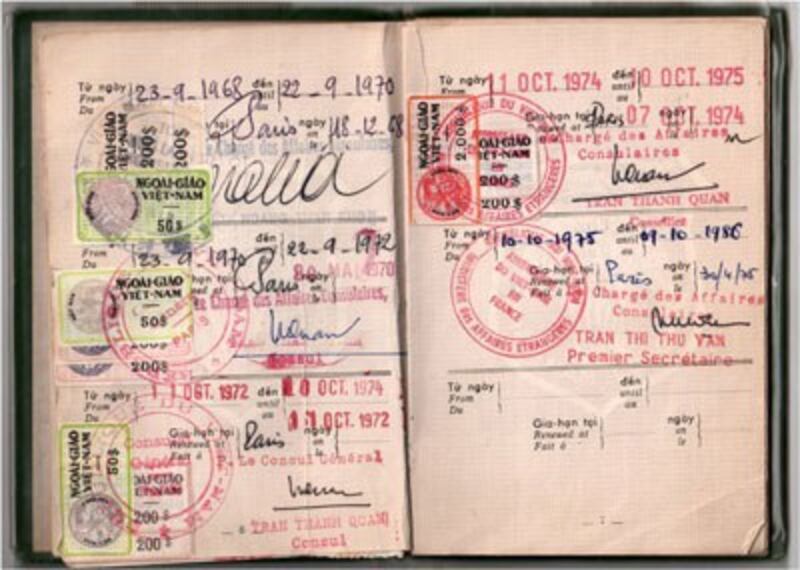 Từ ngày 23-9-1968 đến 22-9-1970
From until
Du au
tại Paris ngày 18-12-68
NGOẠI-GIAO
VIỆT-NAM
200$
200$
Chargé des Affaires Consulaires,
NGOẠI-GIAO
VIỆT-NAM
50$
23-9-1970 đến 22-9-1972
From until
Du au
Gia-hạn tại Paris ngày
Renewed at on
Fait à le
MAI 1970
Le Chargé des Affaires Consulaires,
NGOẠI-GIAO
VIỆT-NAM
50$
200$
Consul
Từ ngày 11 OCT. 1972 đến 10 OCT. 1974
From until
Du au
11 OCT. 1972
Gia-hạn tại Paris ngày
Renewed at on
Fait à le
Le Consul Général
NGOẠI-GIAO
VIỆT-NAM
50$
200$
200$
— 6
TRAN THANH QUAN
Consul
Từ ngày 11 OCT. 1974 đến 10 OCT. 1975
From until
Du au
07 OCT. 1974
Gia-hạn tại Paris
Renewed at
Chargé des Affaires
Consulaires
NGOẠI-GIAO
VIỆT-NAM
2.000$
NGOẠI-GIAO
VIỆT-NAM
200$
200$
AFFAIRES ETRANGERES
TRAN THANH QUAN
Conseiller
Từ ngày 10-10-1975 đến 09-10-1986
From until
Du au
Gia-hạn tại Paris ngày 30/4/75
Renewed at on
Fait à le
Chargé des Affaires
Consulaires
DU VIET
EN
FRANCE
des AFFAIRES ÉTRANGÈRES
TRAN THI THU VAN
Premier Secrétaire
Từ ngày đến
From until
Du au
Gia-hạn tại ngày
Renewed at on
Fait à le
— 7 —